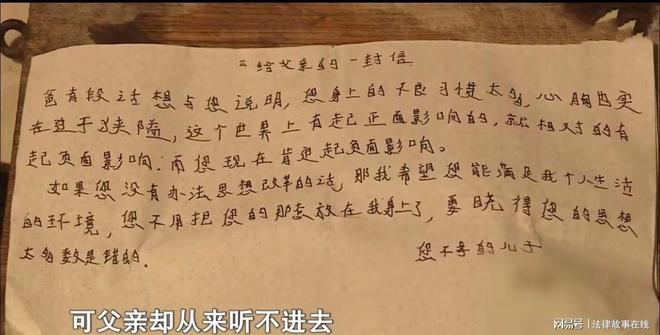 给父亲的一封信
爸有段话想与您说明,您身上的不良习惯太多,心胸也实
在过于狭隘,这个世界上有起正面影响的,就相对的有
起负面影响.而您现在肯定起负面影响。
如果您没有办法思想改革的话,那我希望您能满足我个人生活
的环境,您不用把您的那套放在我身上了,要晓得您的思想
太多数是错的.
您不孝的儿子
可父亲却从来听不进去
网易号 | 法律故事在线